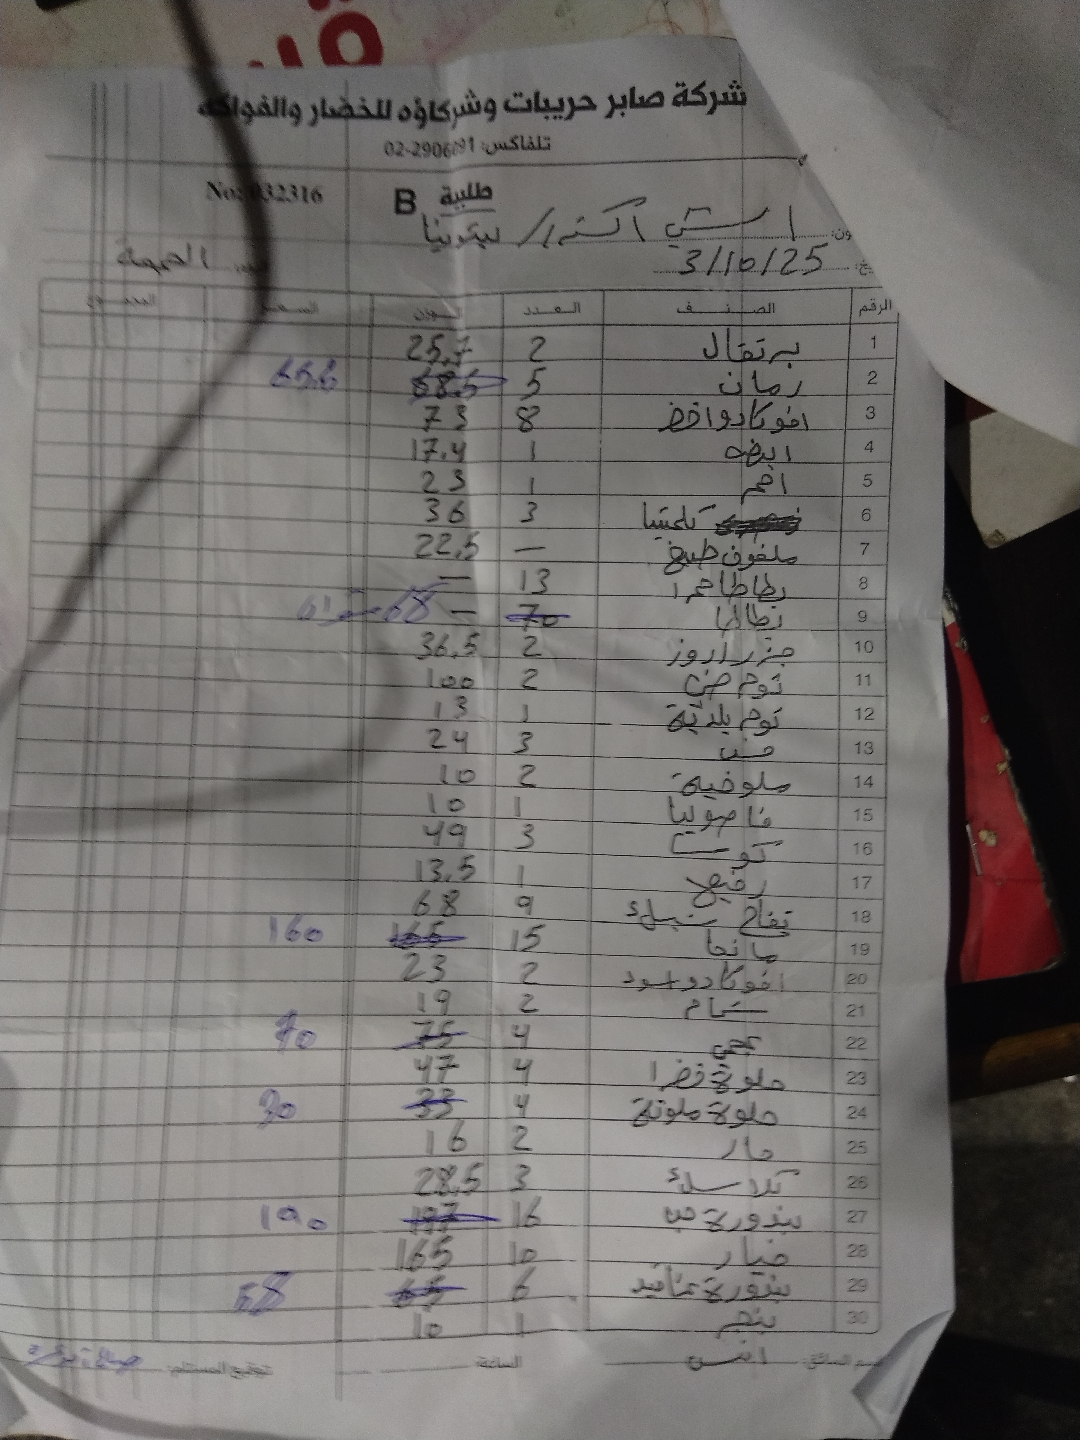 شركة صابر حريبات وشركاؤه للخضار والفواكه
تلفاكس: 02-2906
طلبية B No: 032316
3/10/25 الجمعة
الرقم الصنف العدد الوزن السعر
1 برتقال 2 25,7
2 رمان 5 68.5
3 افوكادو اخضر 8 73
4 ابيض 1 17.4
5 احمر 1 23
6 كلمنتينا 3 36
7 ملفوف طبيخ — 22.5
8 بطاطا حمرا 13 —
9 بطاطا 70 — 68
10 جزر اروز 2 36.5
11 ثوم 2 100
12 ثوم بلدية 1 13
13 خس 3 24
14 ملوخية 2 10
15 فاصوليا 1 10
16 كوسا 3 49
17 رفيع 1 13.5
18 تفاح 9 68
19 مانجا 15 165 160
20 افوكادو اسود 2 23
21 شمام 2 19
22 4 75 70
23 حلوة خضرا 4 47
24 حلوة ملونة 4 33 30
25 حار 2 16
26 كلاسك 3 28.5
27 بندورة 16 197 190
28 خيار 10 165
29 بندورة عناقيد 6 65 58
30 1 10
اسم السائق: انس الساعة توقيع المستلم: